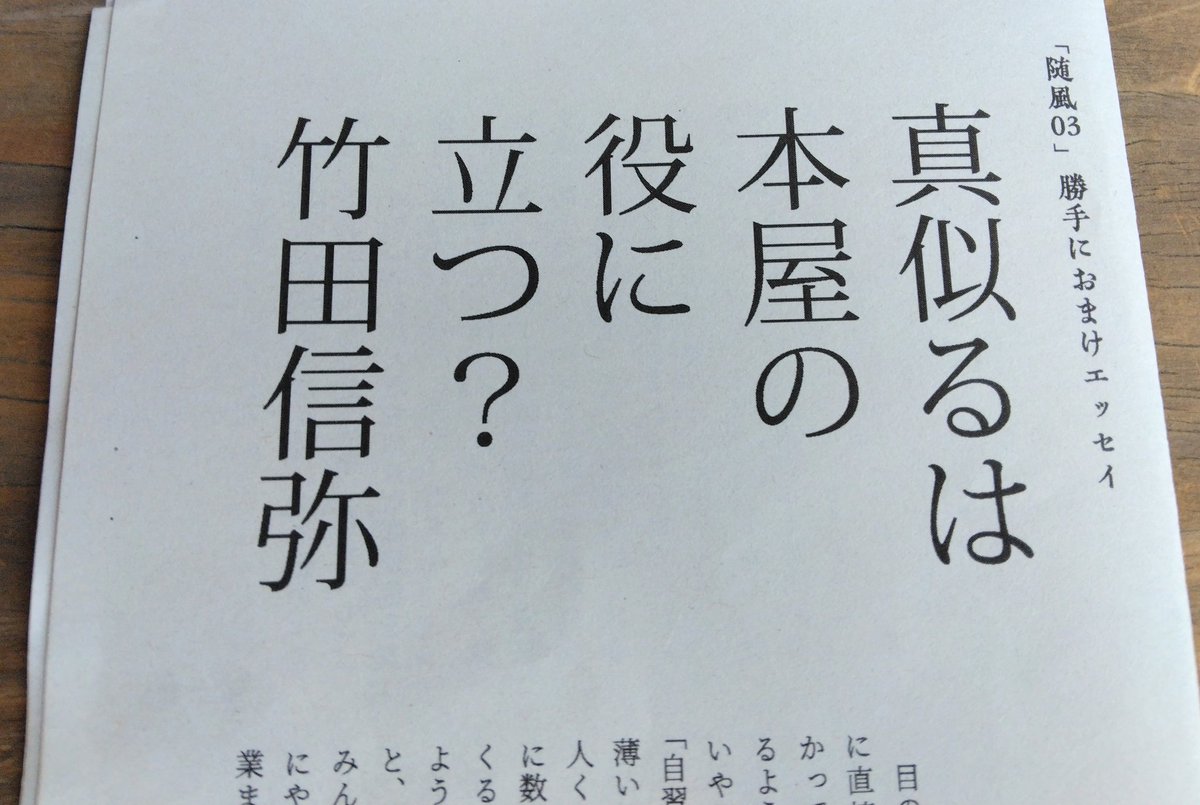 「随風03」 勝手におまけエッセイ
真似るは
本屋の
役に
立つ？
竹田信弥
目の
に直
かって
るよう
いや
「自習
薄い
人く
に数
くる
よう
と、
みん
にや
業ま